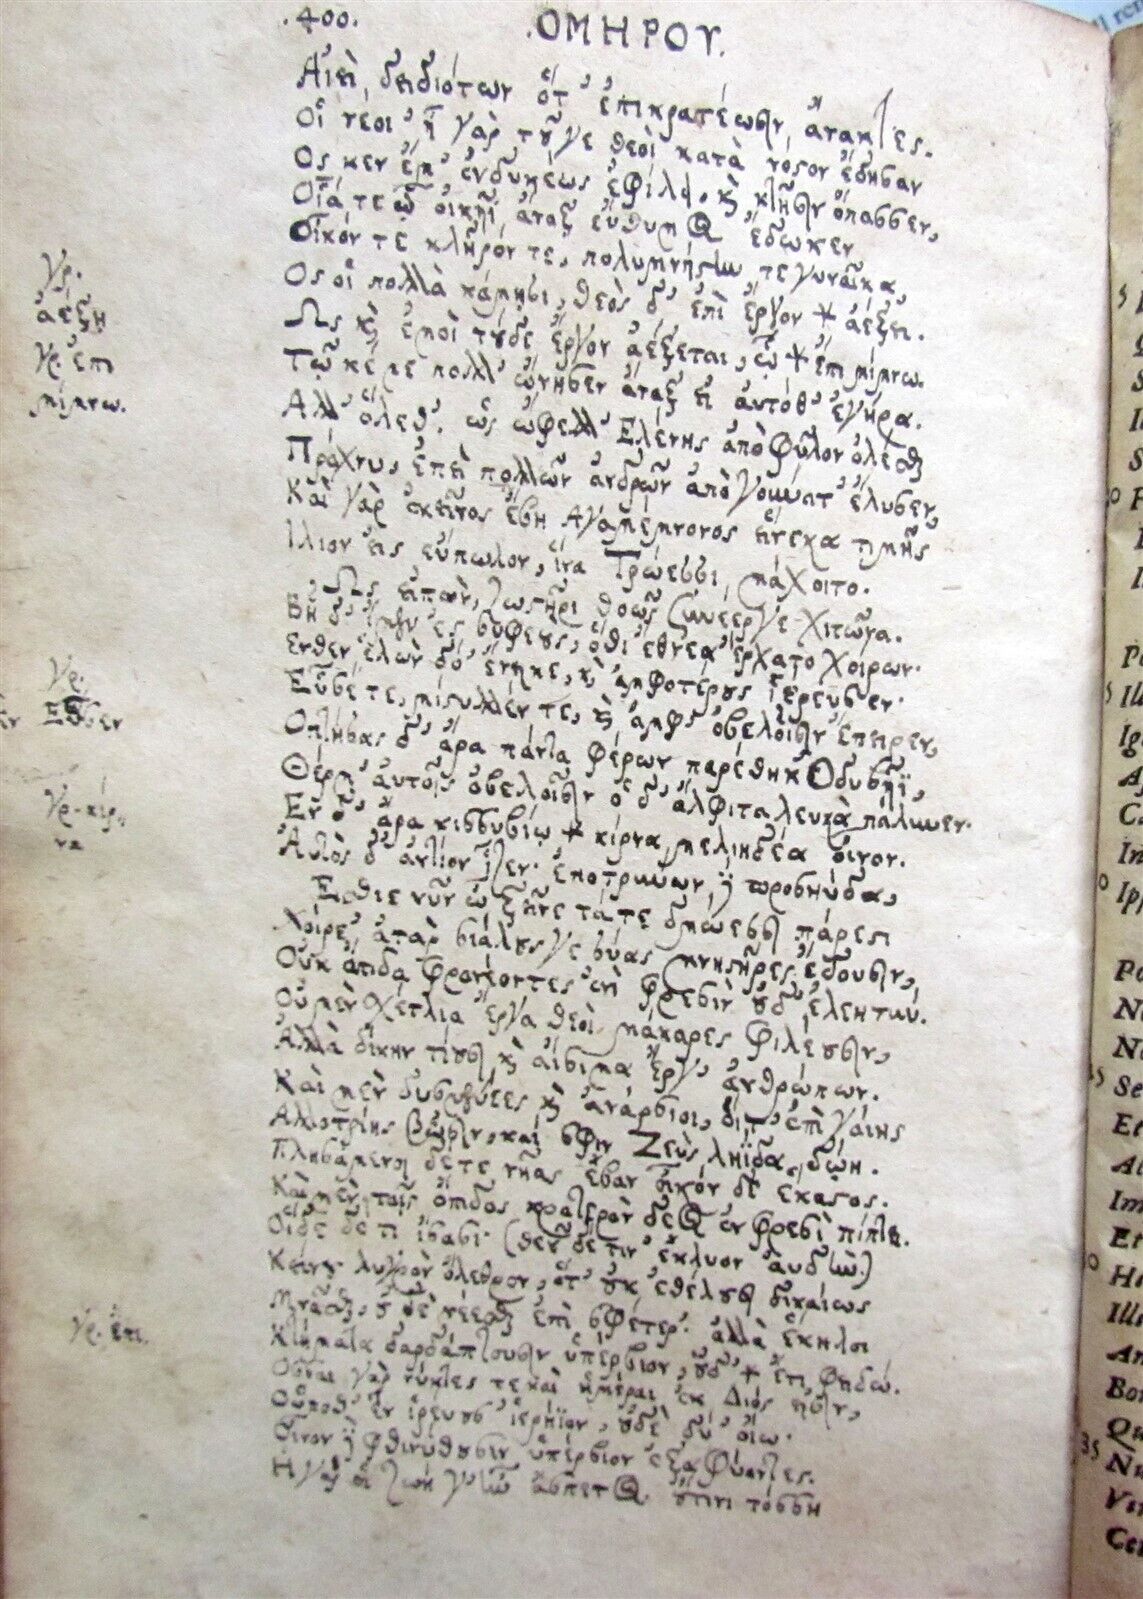 .400. .ΟΜΗΡΟΥ.
Αἰεὶ, δειδιότων ὅτ' ἐπικρατέωσιν ἄνακτες.
Οἱ νέοι· ἦ γὰρ τοῦγε θεοὶ κατὰ νόστον ἔδησαν
Ος κεν ἔμ' ἐνδυκέως ἐφίλει, καὶ κτῆσιν ὄπασσεν,
Οἷά τε ᾧ οἰκῆϊ ἄναξ εὔθυμος ἔδωκεν
Οἶκόν τε κλῆρόν τε, πολυμνήστην τε γυναῖκα,
Ος οἱ πολλὰ κάμησι, θεὸς δ' ἐπὶ ἔργον * ἀέξει.
Ως καὶ ἐμοὶ τόδε ἔργον ἀέξεται, ᾧ * ἐπιμίμνω.
Τῷ κέ με πολλ' ὤνησεν ἄναξ εἰ αὐτόθ' ἐγήρα.
Αλλ' ὄλεθ'. ὡς ὤφελλ' Ελένης ἀπὸ φῦλον ὀλέσθαι
Πρόχνυ, ἐπεὶ πολλῶν ἀνδρῶν ἀπὸ γούνατ' ἔλυσεν,
Καὶ γὰρ ἐκεῖνος ἔβη Αγαμέμνονος εἵνεκα τιμῆς
Ιλιον εἰς εὔπωλον, ἵνα Τρώεσσι μάχοιτο.
Ως εἰπὼν, ζωστῆρι θοῶς ξυνέεργε χιτῶνα.
Βῆ δ' ἴμεν ἐς συφεοὺς, ὅθι ἔθνεα ἔρχατο χοίρων·
Ενθεν ἑλὼν δύ' ἔνεικε, καὶ ἀμφοτέρους ἱέρευσεν·
Εὗσέ τε, μίστυλλέν τε, καὶ ἀμφ' ὀβελοῖσιν ἔπειρεν,
Οπτήσας δ' ἄρα πάντα φέρων παρέθηκ' Οδυσῆϊ,
Θέρμ' αὐτοῖς ὀβελοῖσιν ὁ δ' ἄλφιτα λευκὰ πάλυνεν·
Εν δ' ἄρα κισσυβίῳ * κίρνα μελιηδέα οἶνον.
Αὐτὸς δ' ἀντίον ἷζεν· ἐποτρύνων δὲ προσηύδα,
Εσθιε νῦν ὦ ξεῖνε τά τε δμώεσσι πάρεστι
Χοίρε', ἀτὰρ σιάλους γε σύας μνηστῆρες ἔδουσιν,
Οὐκ ὄπιδα φρονέοντες ἐνὶ φρεσὶν οὐδ' ἐλεητύν.
Οὐ μὲν σχέτλια ἔργα θεοὶ μάκαρες φιλέουσιν,
Αλλὰ δίκην τίουσι καὶ αἴσιμα ἔργ' ἀνθρώπων.
Καὶ μὲν δυσμενέες καὶ ἀνάρσιοι, οἵτ' ἐπὶ γαίης
Αλλοτρίης βῶσιν, καί σφιν Ζεὺς ληΐδα δώῃ.
Πλησάμενοι δέ τε νῆας ἔβαν οἶκόν δε ἕκαστος.
Καὶ μὲν τοῖς ὄπιδος κρατερὸν δέος ἐν φρεσὶ πίπτει.
Οἵδε δέ τι ἴσασι· (θεοῦ δέ τιν' ἔκλυον αὐδήν.)
Κείνου λυγρὸν ὄλεθρον, ὅτ' οὐκ ἐθέλουσι δικαίως
Μνᾶσθαι, οὐδὲ νέεσθαι ἐπὶ σφέτερ'· ἀλλὰ ἕκηλοι
Κτήματα δαρδάπτουσιν ὑπέρβιον, οὐδ' * ἔτι φειδώ.
Οσσαι γὰρ νύκτες τε καὶ ἡμέραι ἐκ Διός εἰσιν,
Οὔποθ' ἓν ἱρεύουσ' ἱερήϊον, οὐδὲ δύ' οἴω·
Οἶνον δὲ φθινύθουσιν ὑπέρβιον ἐξαφύοντες.
Η γάρ οἱ ζωή γ' ἦν ἄσπετος. οὔτινι τόσση
γρ.
ἀέξῃ
γρ. ἐπι
μίμνω.
γρ.
Εὗσεν
γρ. κίρ
να
γρ. ἐπι.